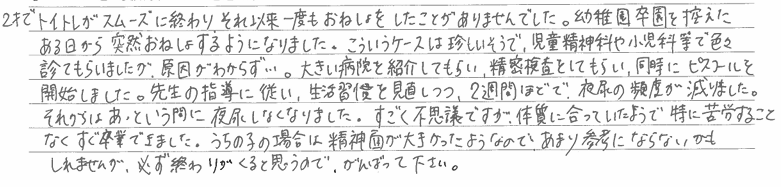 2才でトイトレがスムーズに終わり それ以来一度もおねしょをしたことがありませんでした。幼稚園卒園を控えた
ある日から突然おねしょするようになりました。こういうケースは珍しいそうで、児童精神科や小児科等で色々
診てもらいましたが、原因がわからず…。大きい病院を紹介してもらい、精密検査をしてもらい、同時にピスコールを
開始しました。先生の指導に従い、生活習慣を見直しつつ、2週間ほどで、夜尿の頻度が減りました。
それからはあっという間に夜尿しなくなりました。すごく不思議ですが、体質に合っていたようで特に苦労すること
なくすぐ卒業できました。うちの子の場合は精神面が大きかったようなので、あまり参考にならないかも
しれませんが、必ず終わりがくると思うので、がんばって下さい。